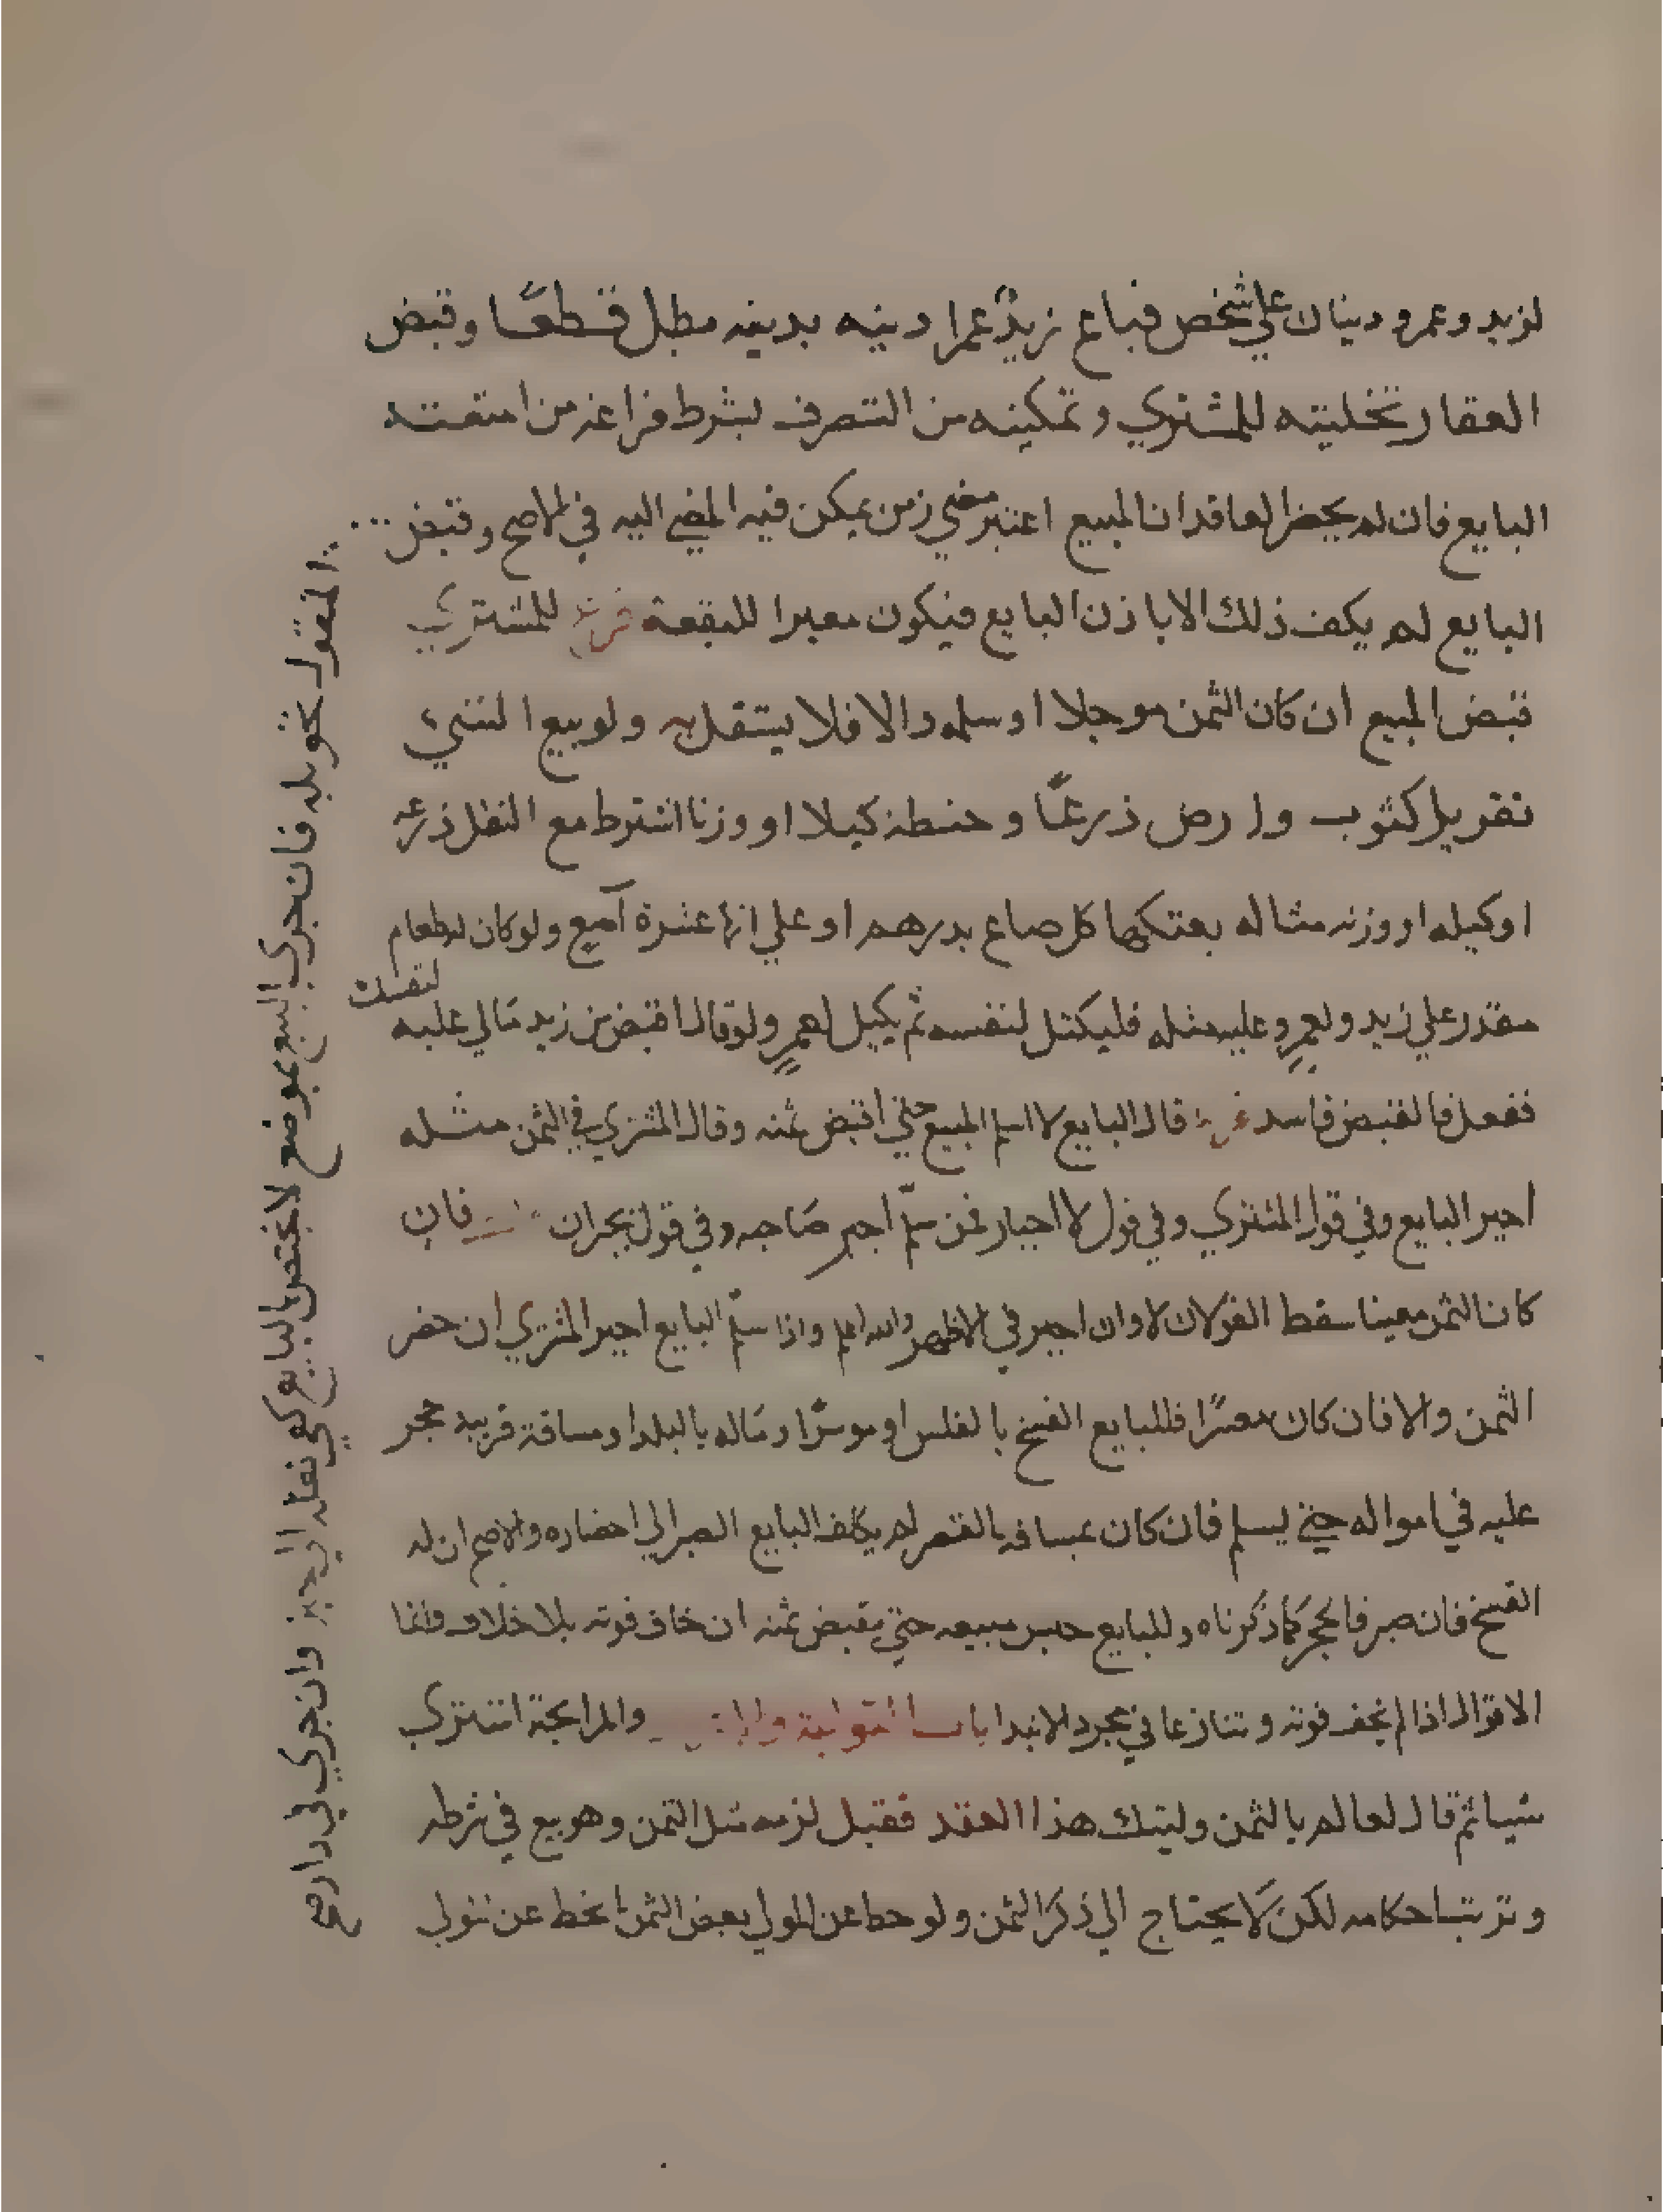 لزيد وعمرو دينان علي شخص فباع زيدٌ عمرا دينه بدينه مطل قطعًا وقبض
العقار تخليته للمشتري وتمكينه من التصرف بشرط فراغه من امتعته
البايع فان لم يحضر العاقدان المبيع اعتبر مضي زمن يمكن فيه المضي اليه في الاصح وقبض
البايع لم يكف ذلك الا باذن البايع فيكون معيرا للبقعة فرع للمشتري
قبض المبيع ان كان الثمن موجلا او سلمه والا فلا يستقل به ولو بيع الشي
تقريرا كثوب وارض ذرعًا وحنطة كيلا او وزنا اشترط مع النقل ذرعه
او كيله او وزنه مثاله بعتكها كل صاع بدرهم او علي انها عشرة آصع ولو كان له طعام
مقدر علي زيد ولعمرو عليه مثله فليكتل لنفسه ثم يكيل لعمرو ولو قال اقبض من زيد مالي عليه
لنفسك
ففعل فالقبض فاسد فرع قال البايع لا اسلم المبيع حتي اقبض ثمنه وقال المشتري في الثمن مثله
اجبر البايع وفي قول المشتري وفي قول لا اجبار فمن سلّم اجبر صاحبه وفي قول يجبران فان
كان الثمن معينا سقط القولان الاولان اجبر في الاظهر والله اعلم واذا سلّم البايع اجبر المشتري ان حضر
الثمن والا فان كان معسرًا فللبايع الفسخ بالفلس او موسرًا وماله بالبلد او مسافة قريبه حجر
عليه في امواله حتي يسلم فان كان بمسافه القصر لم يكلف البايع الصبر الي احضاره والاصح ان له
الفسخ فان صبر فالحجر كما ذكرناه وللبايع حبس مبيعه حتي يقبض ثمنه ان خاف فوته بلا خلاف وانما
الاقوال اذا لم يخف فوته وتنازعا في مجرد الابتدا باب التولية والمرابحة اشتري
شيا ثم قال لعالم بالثمن وليتك هذا العقد فقبل لزمه مثل الثمن وهو بيع في شرطه
وترتب احكامه لكن لا يحتاج الي ذكر الثمن ولو حط عن المولي بعض الثمن انحط عن المولي
المنقول تحويله فان جري البيع بموضع لا يختص بالبايع كفي نقله الي حيز وان جري في دار مع